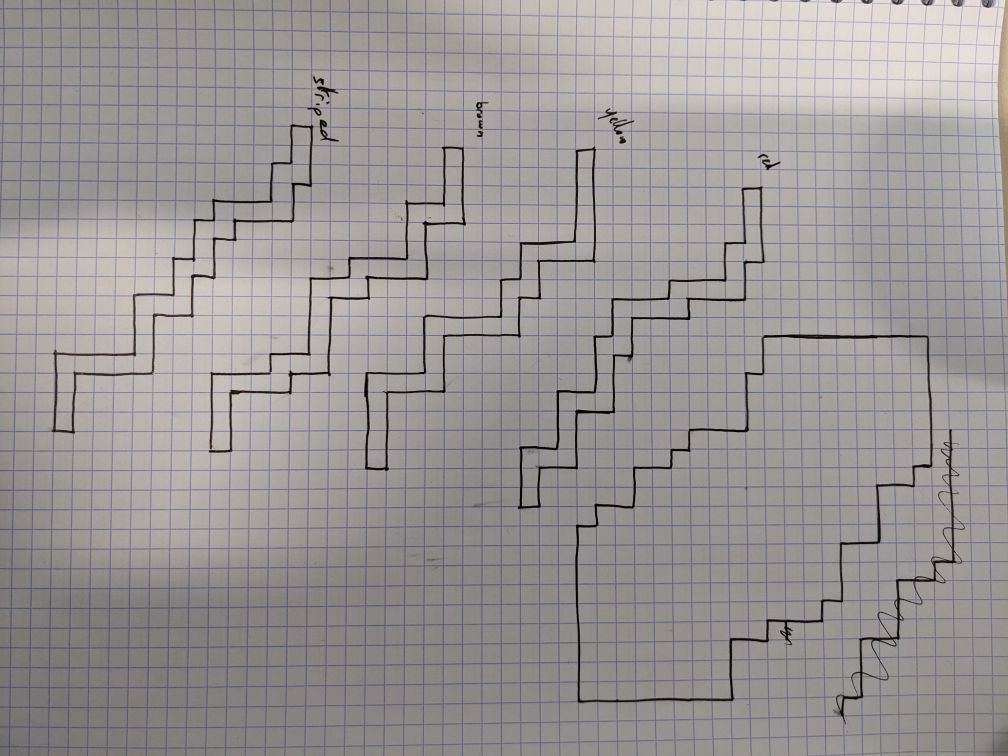 striped
brown
yellow
red